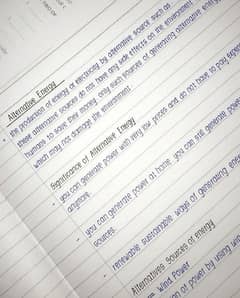 Alternative Energy
the production of energy or electricity by alternative source such as
these alternative sources do not have any side effects on the environment
humans to save their money. only such sources of generating alternative energy
which may not damage the environment.
Significance of Alternative Energy
you can generate power with very low prices and do not have to pay
anymore.
you can generate power at home. you can still generate power
sources.
renewable sustainable ways of generating
Alternatives Sources of energy
Wind Power
power by using